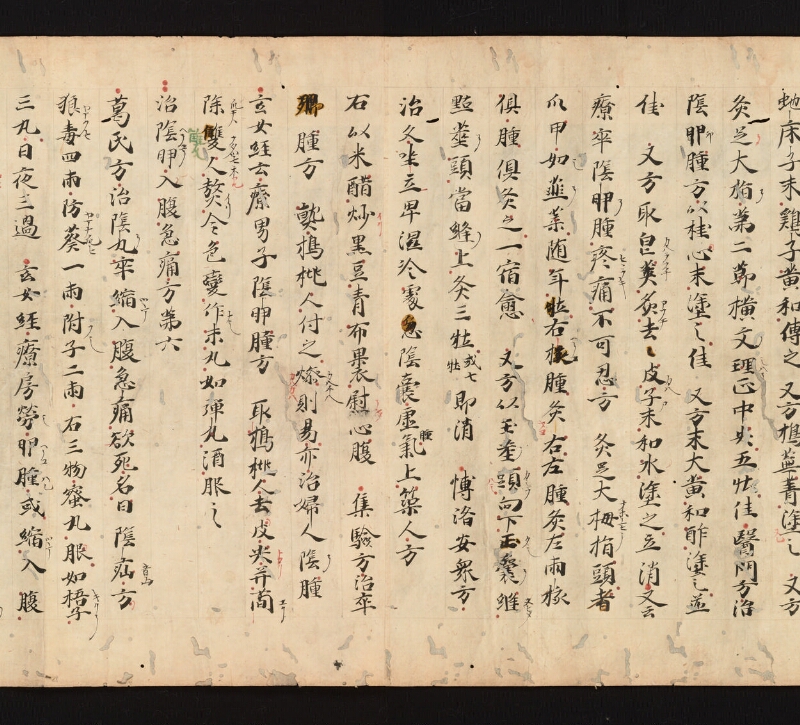 虵床子末鷄子黄和傅之 又方搗蕪菁塗之 又方
灸足大指第二節横文理正中央五壮佳 醫門方治
陰卵腫方以桂心末塗之佳 又方末大黄和酢塗之並
佳 又方取皀莢灸去皮子末和水塗之立消 又云
療卒陰卵腫疼痛不可忍方 灸足大拇指頭者
爪甲如韮葉随年壮右核腫灸右左腫灸左兩核
俱腫俱灸之一宿愈 又方以玉莖頭向下玉嚢縫
點莖頭當縫上灸三壮或七壮即消 博洛安衆方
治久坐立卑濕冷處急陰嚢虚腫氣上築人方
石以米醋炒黒豆青布裹慰心腹 集験方治卒
腫方 熟搗桃人付之燥則易亦治婦人陰腫
玄女経云療男子陰卵腫方 取搗桃人去皮尖并
除雙人熬令色變作末丸如弾丸酒服之
治陰卵入腹急痛方第六
葛氏方治陰丸卒縮入腹急痛欲死名曰陰疝方
狼毒四兩防葵一兩附子二兩 右三物蜜丸服如梧子
三丸日夜三過 玄女経療房労卵腫或縮入腹